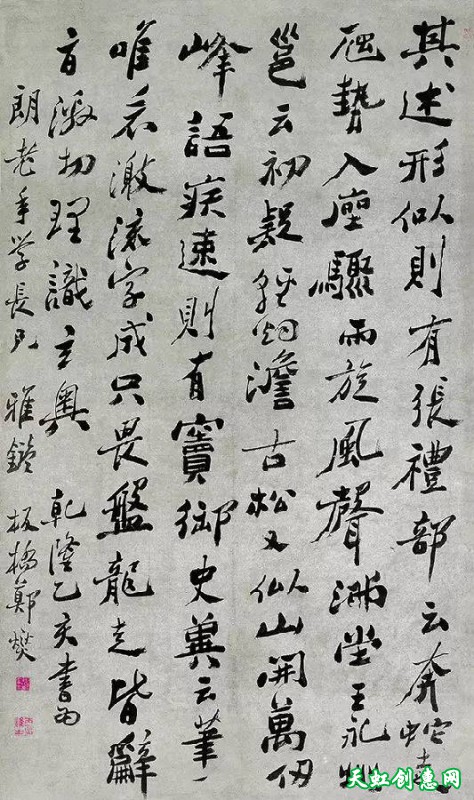 其述形似則有張禮部云奔蛇走
虺勢入座驟雨旋風聲滿堂王永州
邕云初疑輕煙澹古松又似山開萬仞
峰語疾速則有竇御史冀云筆下
唯看激流字成只畏盤龍走皆辭
旨激切理識玄奧 乾隆乙亥書為
朗老年學長兄 雅鑒 板橋鄭燮
天虹创意网